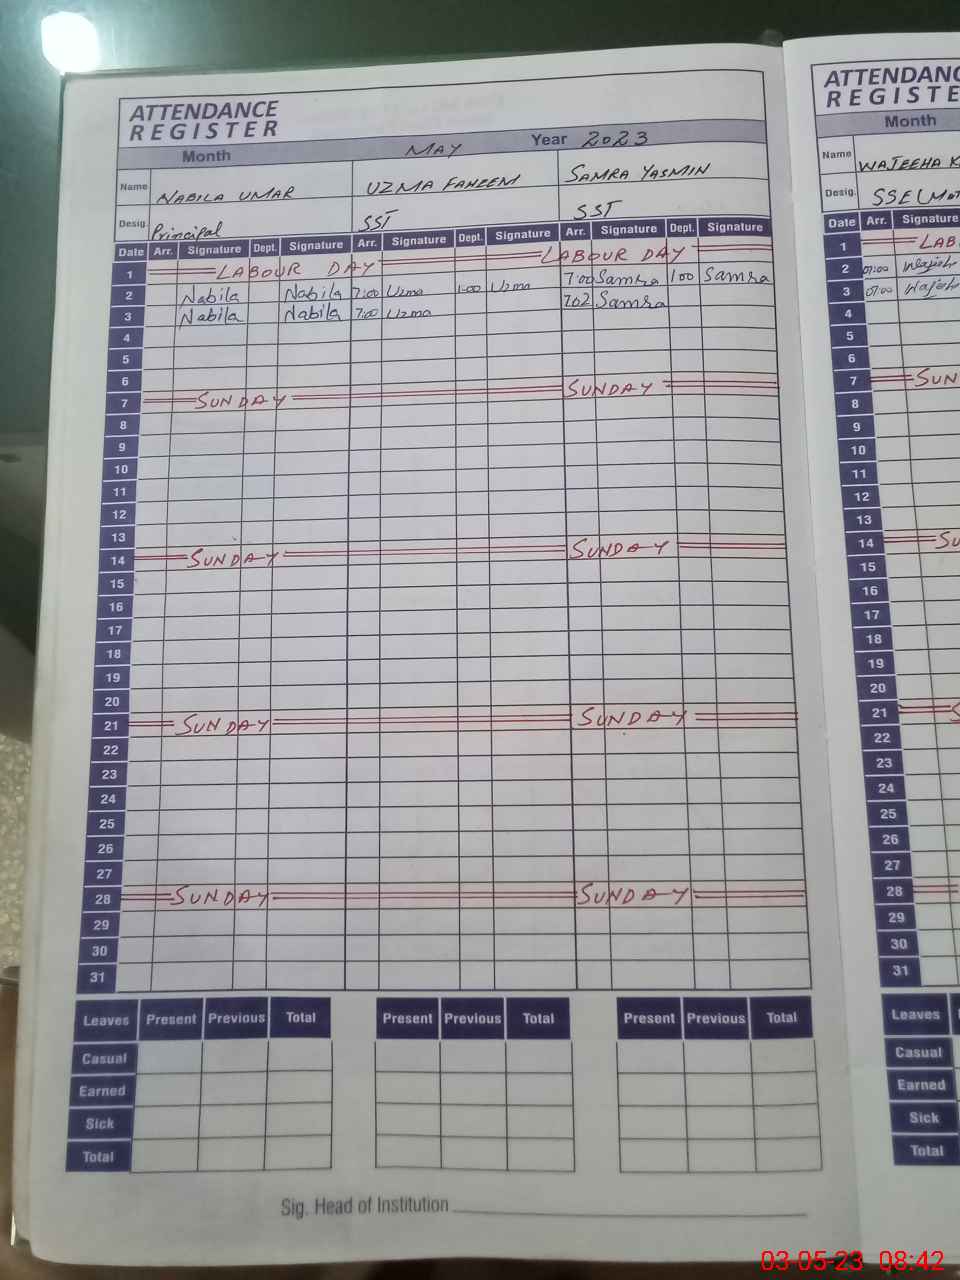 ATTENDANCE
REGISTER
Month MAY Year 2023
Name NABILA UMAR UZMA FAHEEM SAMRA YASMIN
Desig. Principal SST SST
Date Arr. Signature Dept. Signature Arr. Signature Dept. Signature Arr. Signature Dept. Signature
1 LABOUR DAY LABOUR DAY
2 Nabila Nabila 7:00 Uzma 1:00 Uzma 7:00 Samra 1:00 Samra
3 Nabila Nabila 7:00 Uzma 7:02 Samra
4
5
6
7 SUNDAY SUNDAY
8
9
10
11
12
13
14 SUNDAY SUNDAY
15
16
17
18
19
20
21 SUNDAY SUNDAY
22
23
24
25
26
27
28 SUNDAY SUNDAY
29
30
31
Leaves Present Previous Total Present Previous Total Present Previous Total
Casual
Earned
Sick
Total
Sig. Head of Institution
ATTENDANC
REGISTE
Month
Name WAJEEHA K
Desig. SSE
Date Arr. Signature
1 LAB
2 07:00 Wajeeh
3 07:00 Wajeeh
4
5
6
7 SUN
8
9
10
11
12
13
14 SU
15
16
17
18
19
20
21 S
22
23
24
25
26
27
28
29
30
31
Leaves
Casual
Earned
Sick
Total
03-05-23 08:42